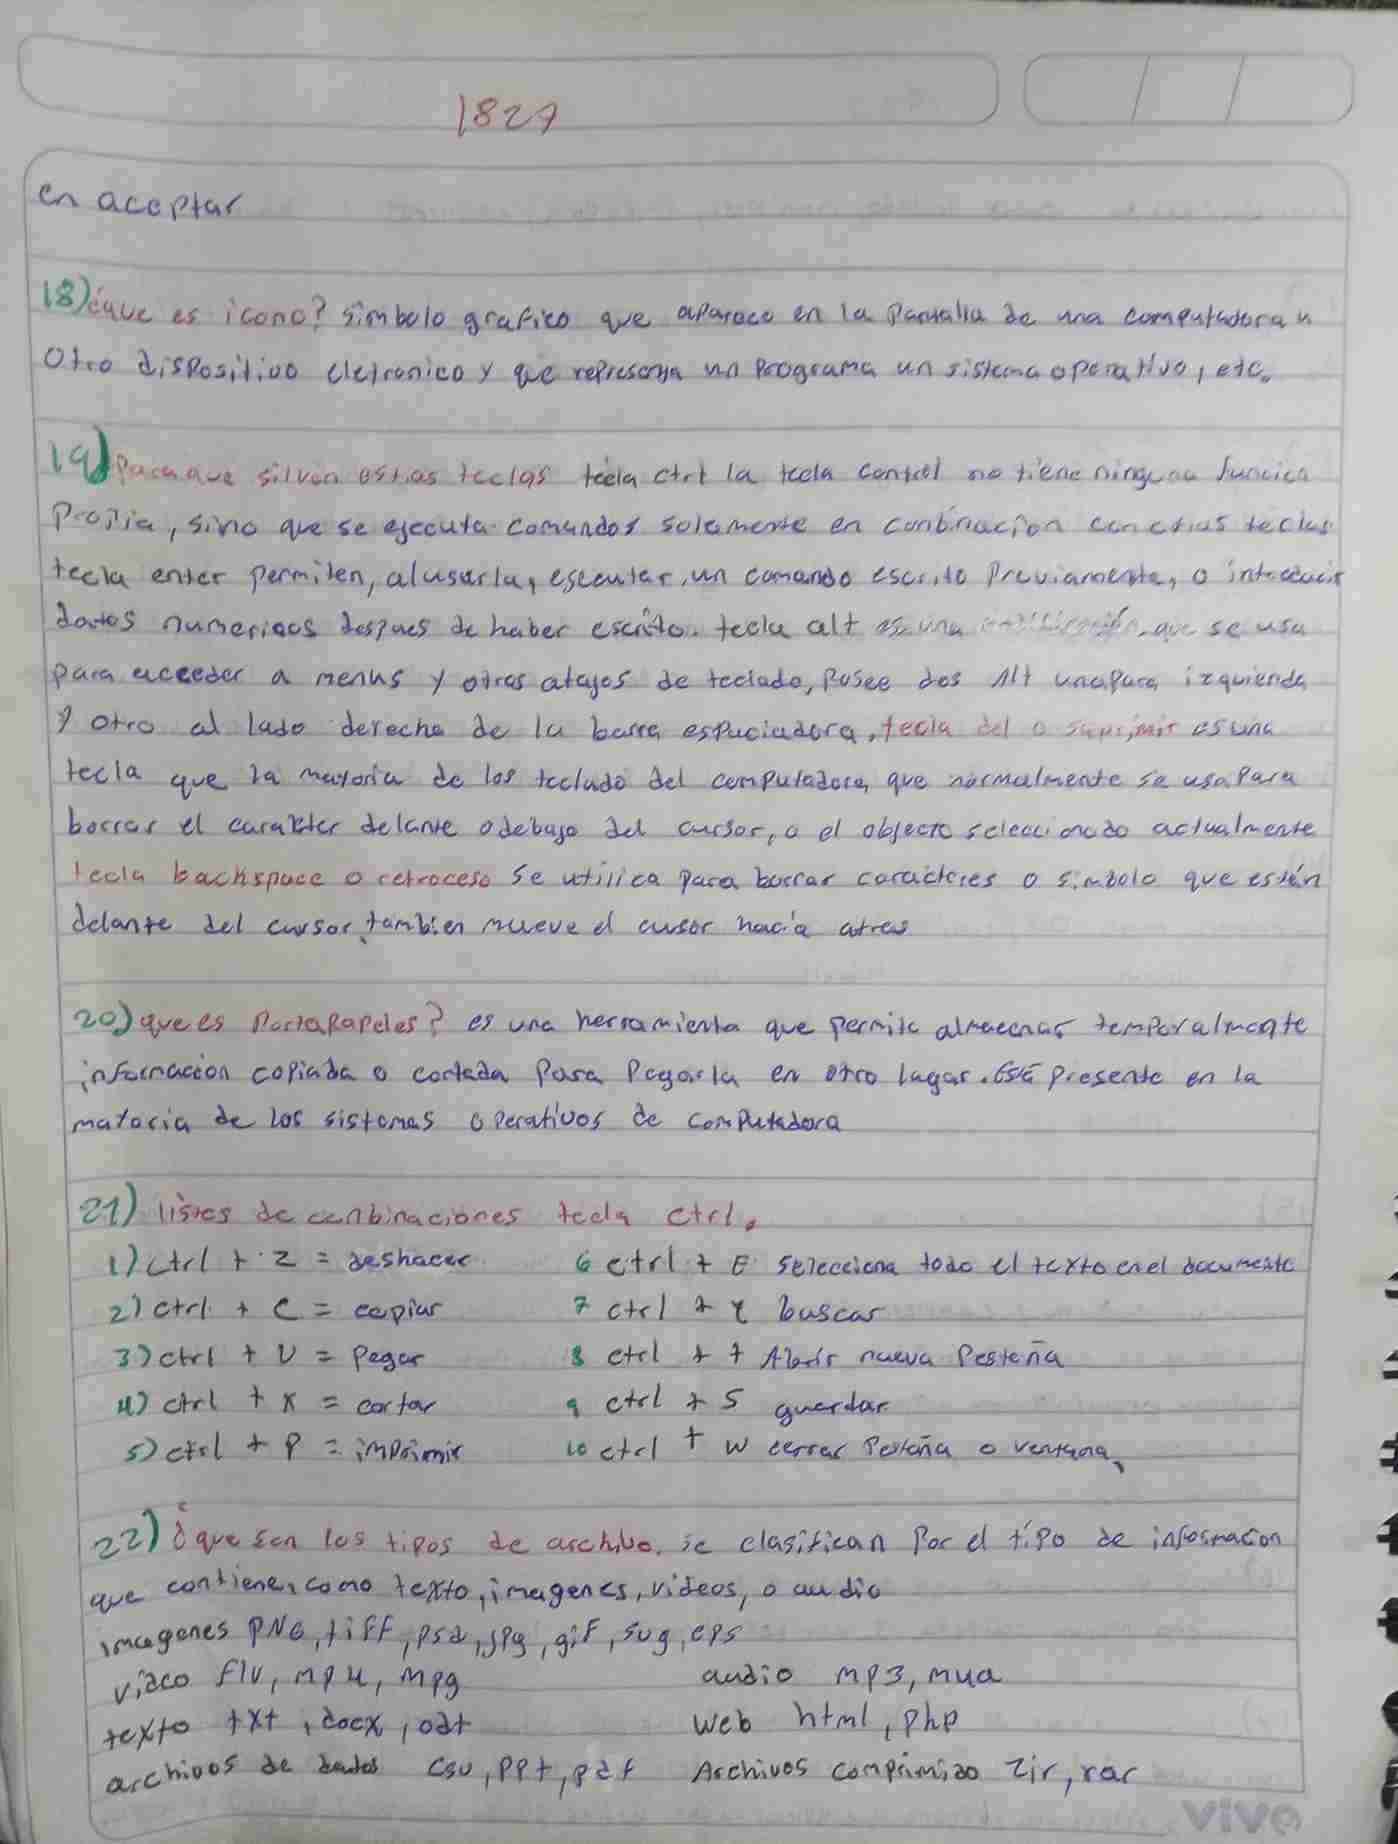 1827
en aceptar
18) ¿que es icono? simbolo grafico que aparece en la pantalla de una computadora u
otro dispositivo eletronico y que representa un programa un sistema operativo, etc.
19) Para que silven estas teclas tecla ctrl la tecla control no tiene ninguna funcion
Propia, sino que se ejecuta comandos solamente en conbinacion con otras teclas
tecla enter permiten, al usarla, escentar, un comando escrito previamente, o introducir
datos numericos despues de haber escrito. tecla alt es una que se usa
para acceeder a menus y otros atajos de teclado, Posee dos Alt una para izquienda
y otro al lado derecho de la barra espaciadora, tecla del o suprimir es una
tecla que la mayoria de los teclado del computadora, que normalmente se usa para
borrar el carakter delante o debajo del cursor, o el objecto seleccionado actualmente
tecla backspace o retroceso se utilica para borrar caracteres o simbolo que estén
delante del cursor, tambien mueve el cursor hacia atras
20) que es Portapapeles? es una herramienta que permite almacenar temporalmente
informacion copiada o cortada para Pegarla en otro lugar. Está presente en la
mayoria de los sistemas operativos de computadora
21) listes de conbinaciones tecla ctrl.
1) ctrl + z = deshacer 6 ctrl + E selecciona todo el texto en el documento
2) ctrl + c = copiar 7 ctrl + buscar
3) ctrl + v = Pegar 8 ctrl + t Abrir nueva Pesteña
4) ctrl + x = cortar 9 ctrl + S guardar
5) ctrl + P = imprimir 10 ctrl + w cerrar Pesteña o ventana,
22) ¿que son los tipos de archivo. se clasifican Por el tipo de informacion
que contiene, como texto, imagenes, videos, o audio
imagenes PNG, tiff, psd, jpg, gif, svg, eps
video flv, mp4, mpg audio mp3, mua
texto txt, docx, odt web html, php
archivos de datos csv, ppt, pdf Archivos comprimiso zir, rar
vivo